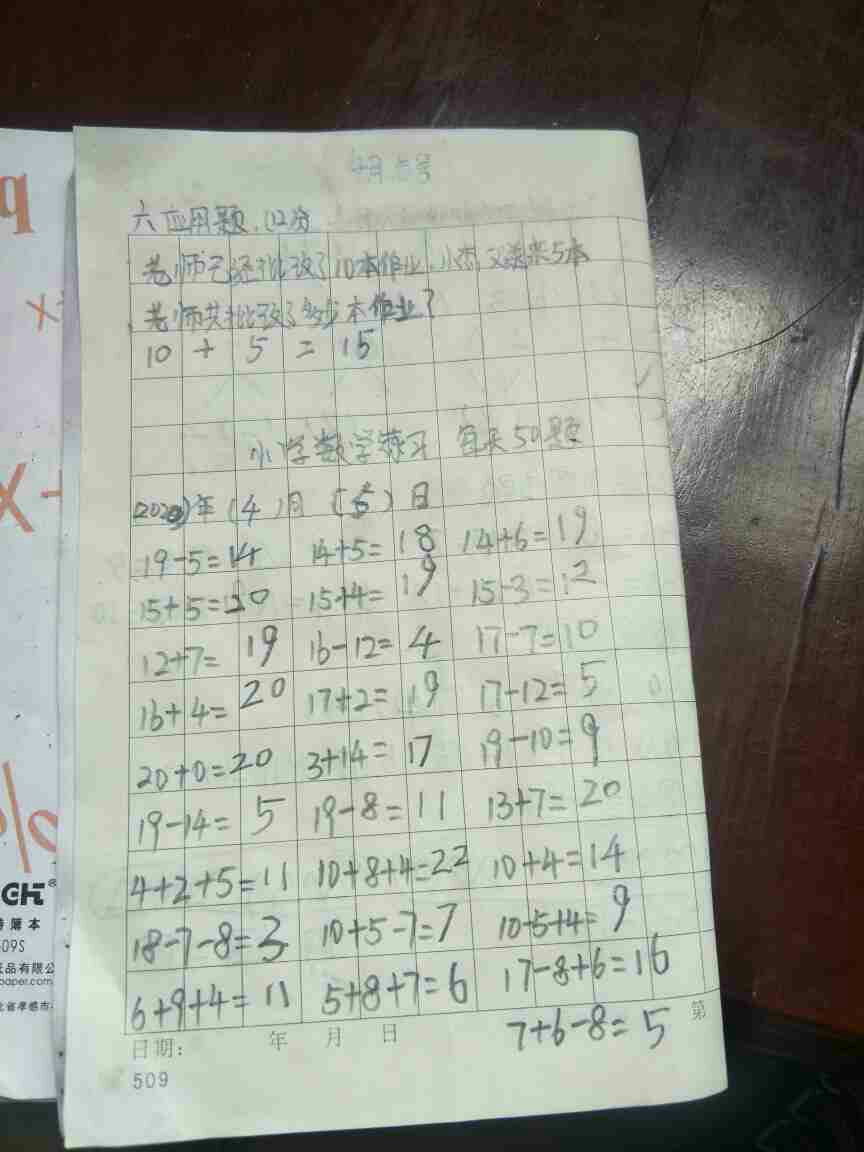 4月5号
六应用题.(12分
老师已经批改了10本作业,小杰又送来5本
老师共批改了多少本作业?
10 + 5 = 15
小学数学练习 每天50题
(2020)年(4)月(5)日
19-5=14 14+5=18 14+6=19
15+5=20 15+4=19 15-3=12
12+7=19 16-12=4 17-7=10
16+4=20 17+2=19 17-12=5
20+0=20 3+14=17 19-10=9
19-14=5 19-8=11 13+7=20
4+2+5=11 10+8+4=22 10+4=14
18-7-8=3 10+5-7=7 10-5+4=9
6+9+4=11 5+8+7=6 17-8+6=16
7+6-8=5
日期: 年 月 日 第
509
簿本
509S
品有限公
paper.com
北省孝感市